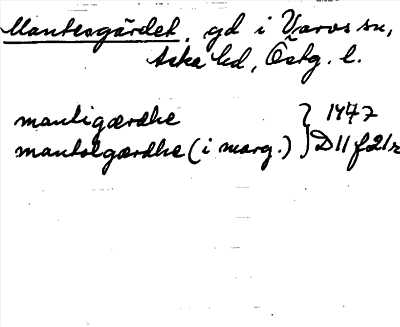 Mantesgärdet, gd i Varvs sn,
Aska hd, Östg. l.
mantigærdhe } 1447
mantolgærdhe (i marg.) } D 11 f 21r